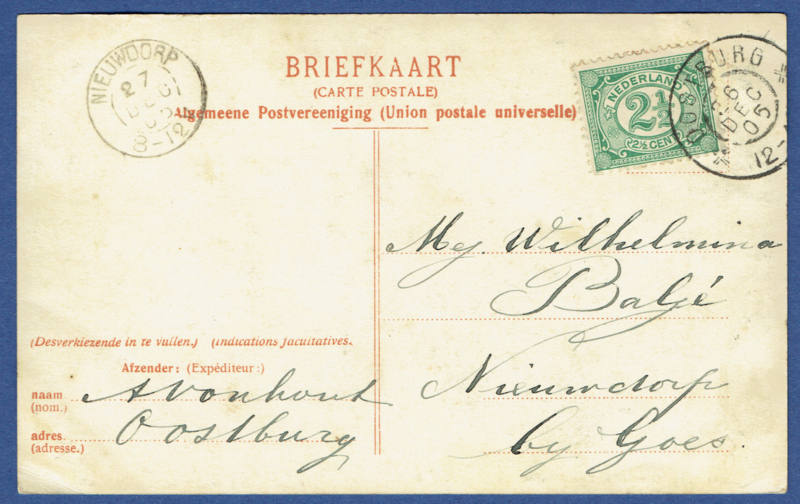 NIEUWDORP
27
DEC
05
8-12
BRIEFKAART
(CARTE POSTALE)
Algemeene Postvereeniging (Union postale universelle)
NEDERLAND
2½
2½ CENT
OOSTBURG
26
DEC
05
12-
Mej. Wilhelmina
Baljé
Nieuwdorp
by Goes.
(Desverkiezende in te vullen.) (Indications facultatives.
Afzender: (Expéditeur:)
naam A vonhout
(nom.)
adres. Oostburg
(adresse.)